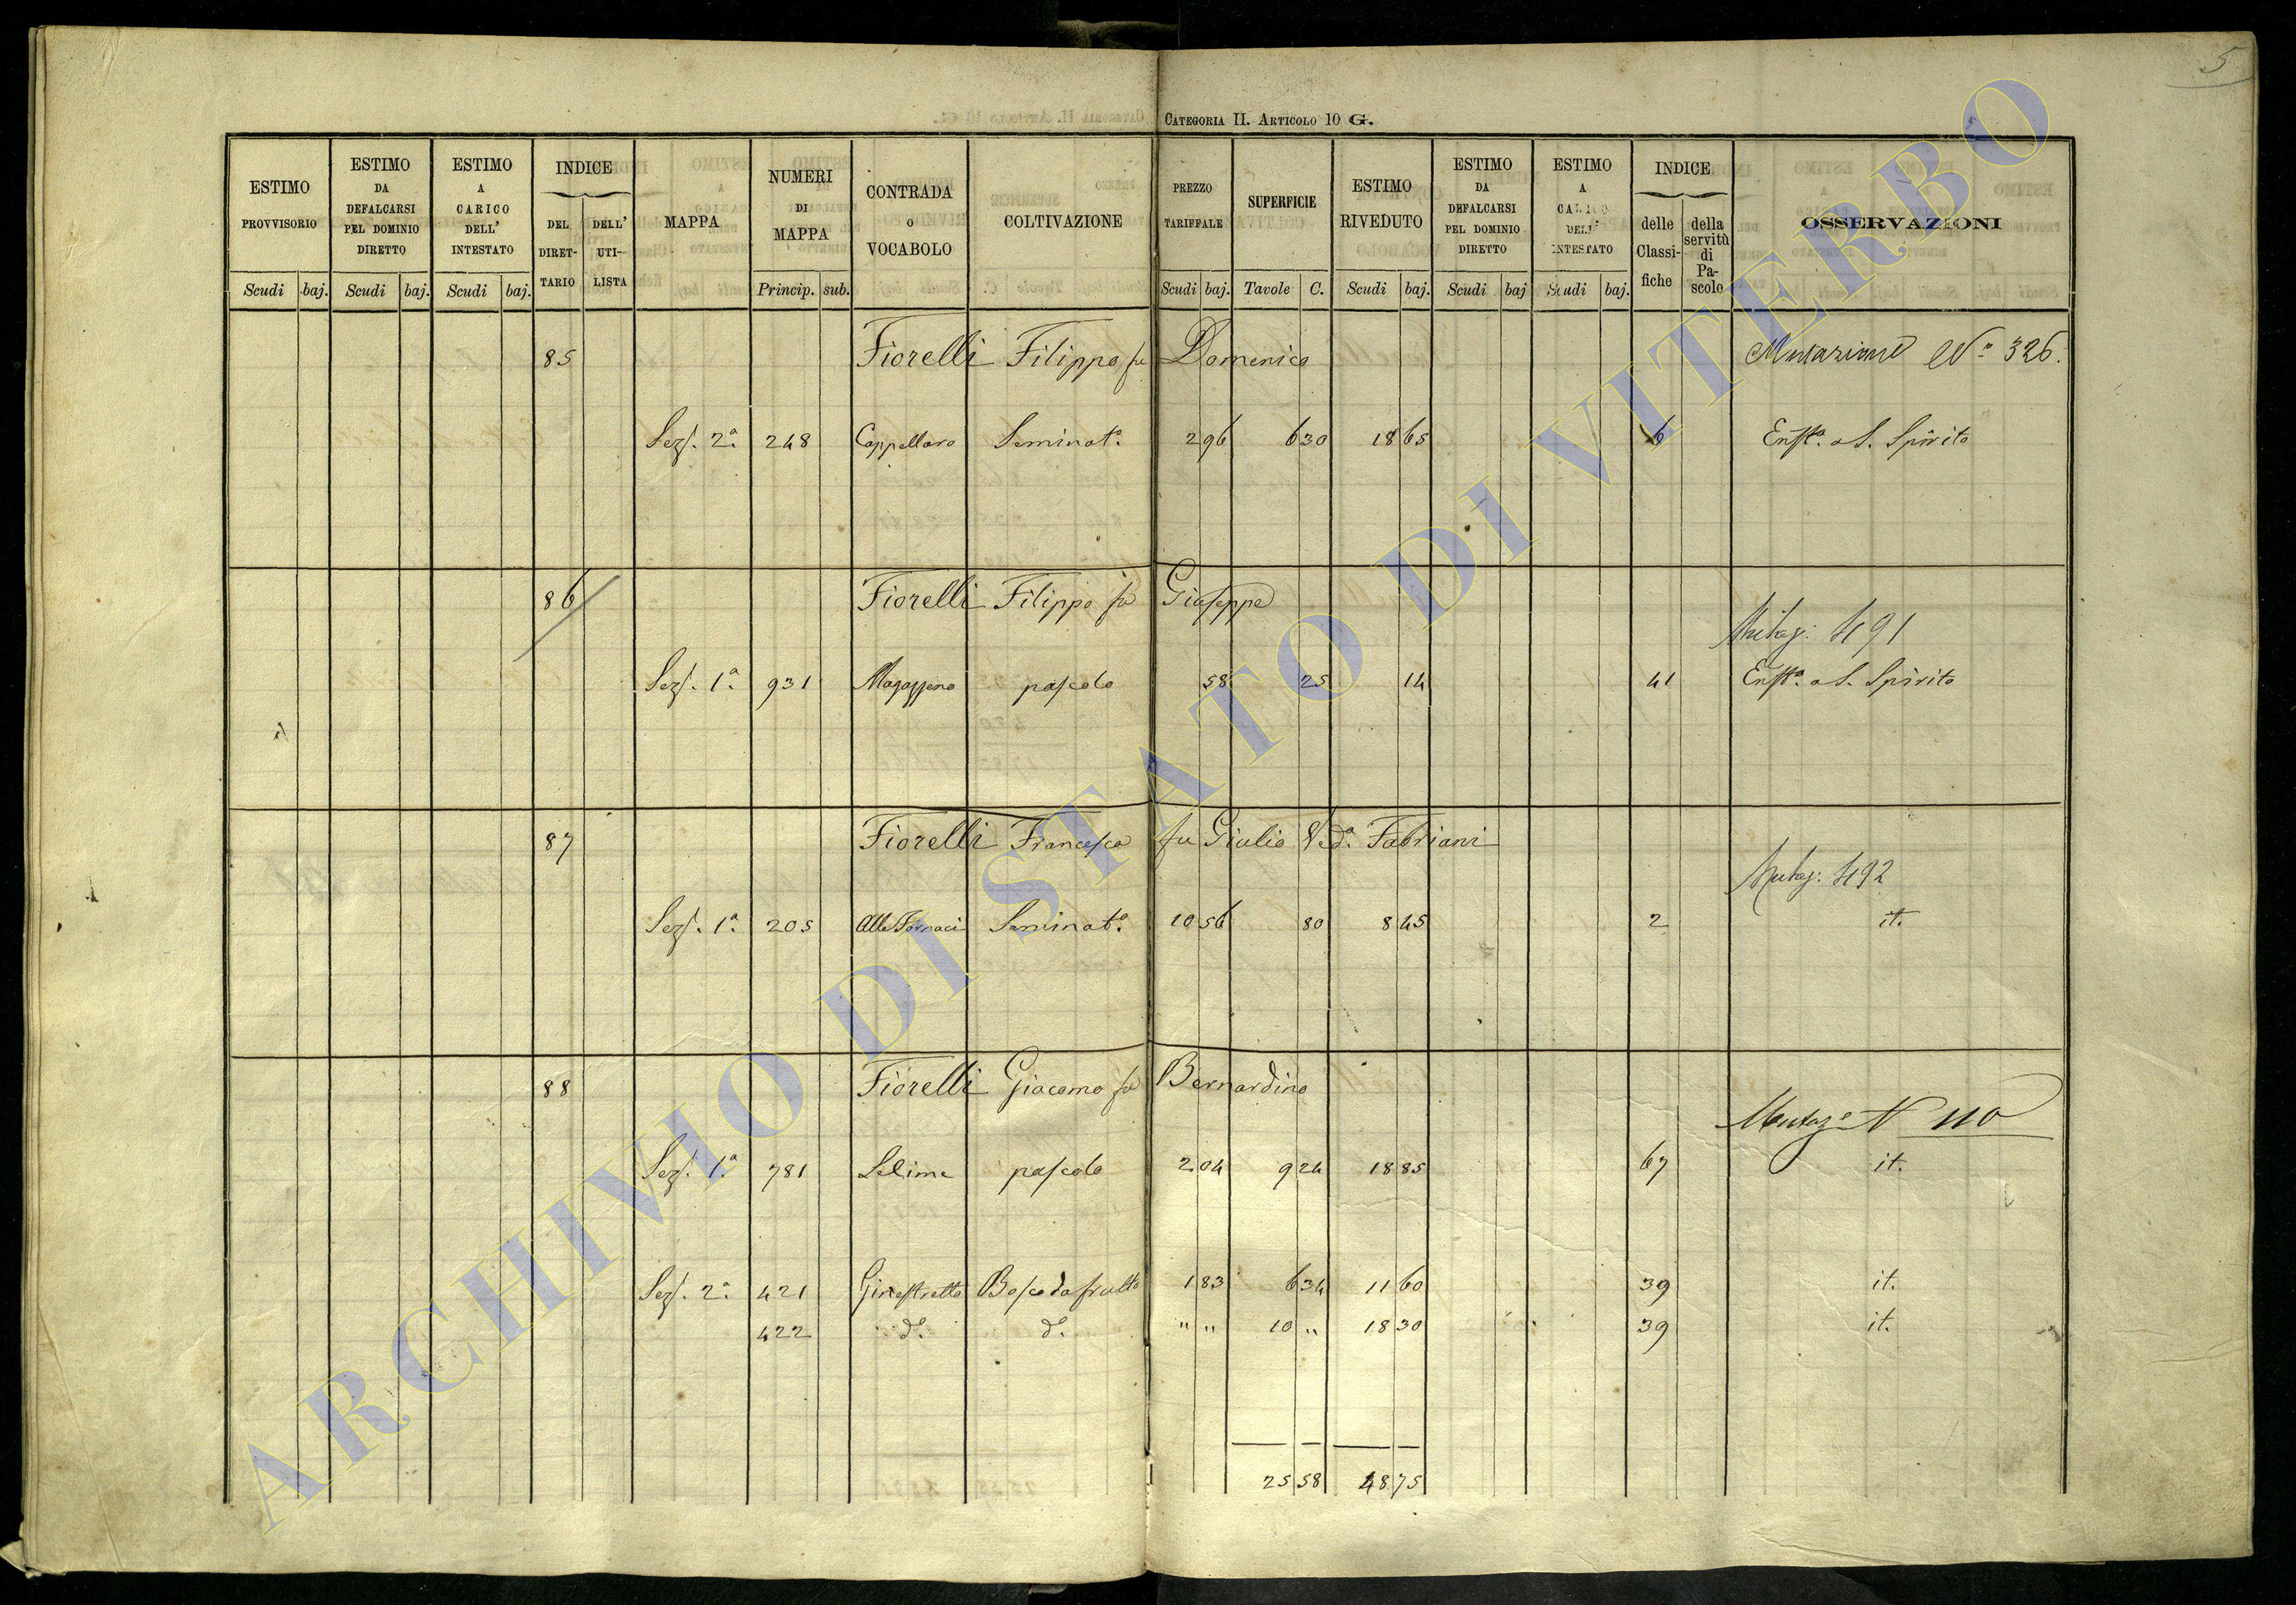 5
CATEGORIA II. ARTICOLO 10 G.
ESTIMO PROVVISORIO Scudi baj.
ESTIMO DA DEFALCARSI PEL DOMINIO DIRETTO Scudi baj.
ESTIMO A CARICO DELL' INTESTATO Scudi baj.
INDICE DEL DIRETTARIO DELL' UTILISTA
MAPPA
NUMERI DI MAPPA Princip. sub.
CONTRADA O VOCABOLO
COLTIVAZIONE
PREZZO TARIFFALE Scudi baj.
SUPERFICIE Tavole C.
ESTIMO RIVEDUTO Scudi baj.
ESTIMO DA DEFALCARSI PEL DOMINIO DIRETTO Scudi baj
ESTIMO A CARICO DELL' INTESTATO Scudi baj.
INDICE delle Classifiche della servitù di Pascolo
OSSERVAZIONI
85 Fiorelli Filippo fu Domenico Mutazione N° 326.
Sez. 2ª 248 Cappellaro Seminat° 2 96 6 30 18 65 6 Enfta a S. Spirito
86 Fiorelli Filippo fu Giuseppe
Mutaz: 491
Sez. 1ª 931 Magazzeno pascolo 58 25 14 41 Enfta a S. Spirito
87 Fiorelli Francesca fu Giulio Veda Fabriani
Mutaz: 492
Sez. 1ª 205 Alle Fornaci Seminat° 10 56 80 8 45 2 it.
88 Fiorelli Giacomo fu Bernardino
Mutaze N 110
Sez. 1ª 781 Selime pascolo 2 04 9 24 18 85 67 it.
Sez. 2ª 421 Ginestretto Bosco da frutto 1 83 6 34 11 60 39 it.
422 d° d° " " 10 " 18 30 39 it.
25 58 48 75
ARCHIVIO DI STATO DI VITERBO